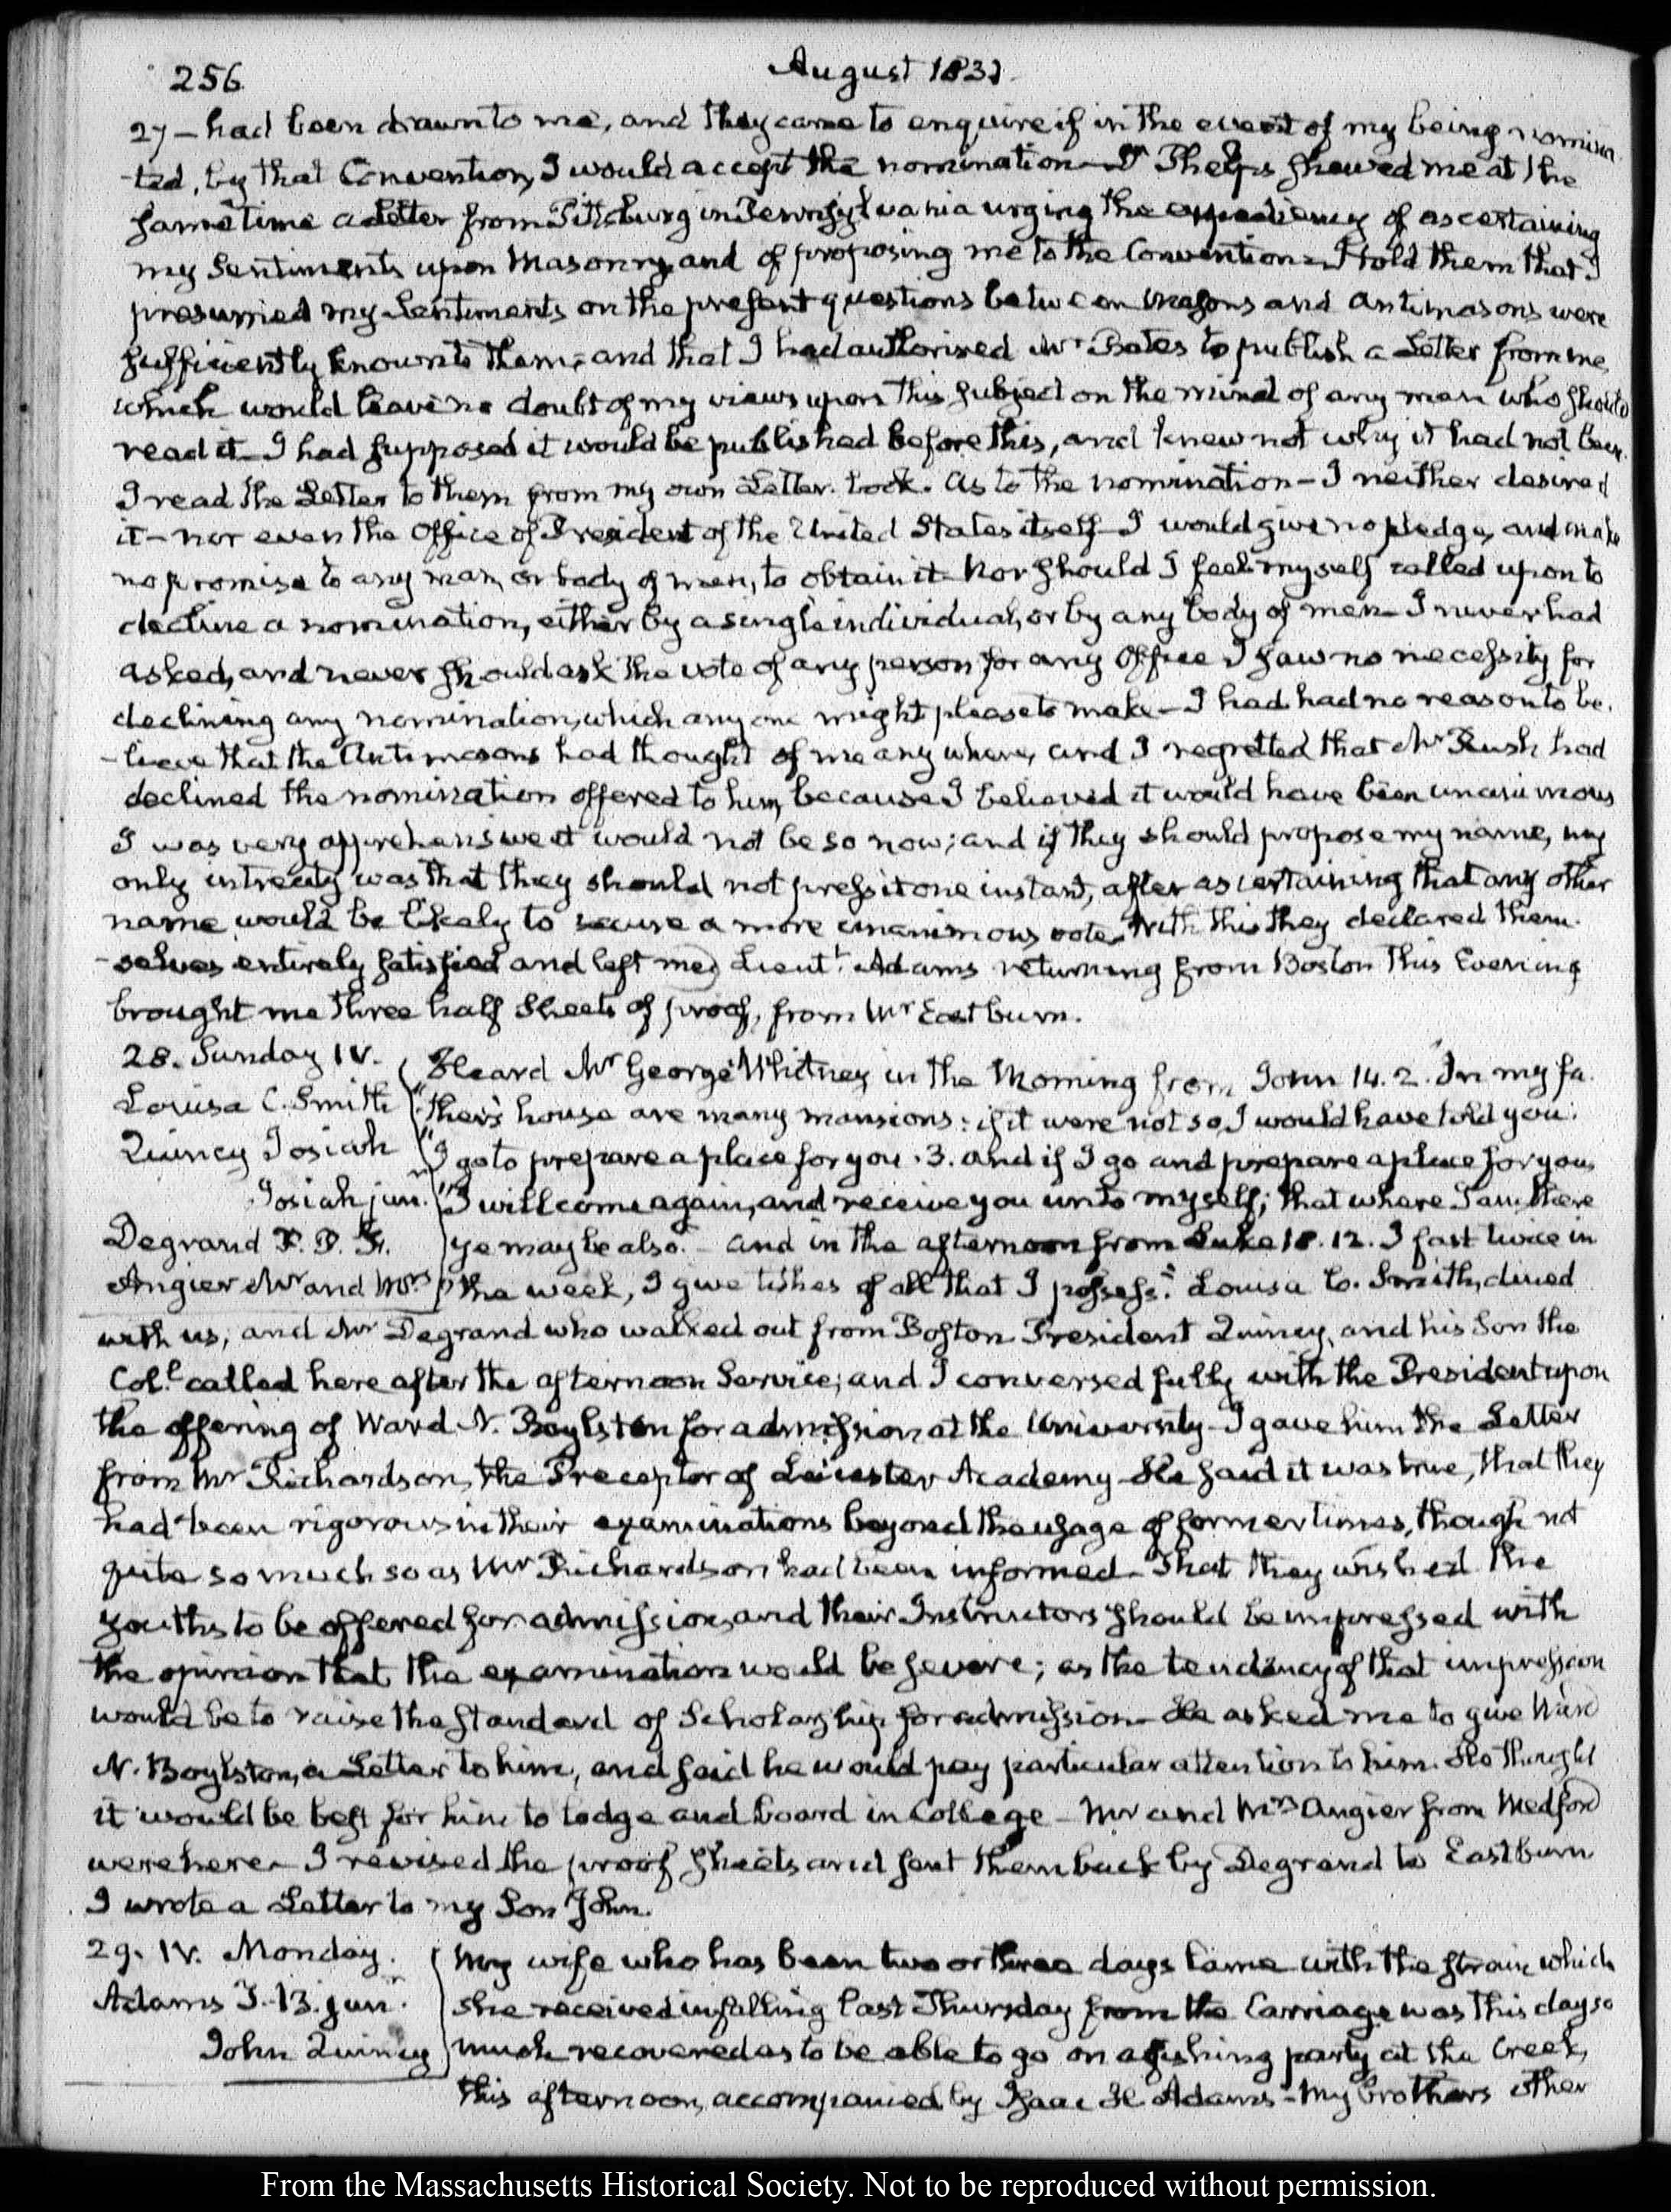 256
August 1831.
27 — had been drawn to me, and they came to enquire if in the event of my being nomina-
-ted, by that Convention, I would accept the nomination — Dr Phelps shewed me at the
same time a Letter from Pittsburg in Pennsylvania urging the expediency of ascertaining
my Sentiments upon Masonry, and of proposing me to the Convention — I told them that I
presumed my Sentiments on the present questions between Masons and Antimasons were
sufficiently known to them; and that I had authorised Mr Bates to publish a Letter from me,
which would leave no doubt of my views upon this subject on the mind of any man who should
read it — I had supposed it would be published before this, and knew not why it had not been.
I read the Letter to them from my own Letter-book. As to the nomination — I neither desired
it — nor even the Office of President of the United States itself — I would give no pledge, and make
no promise to any man, or body of men, to obtain it — Nor should I feel myself called upon to
decline a nomination, either by a single individual, or by any body of men — I never had
asked, and never should ask the vote of any person for any Office — I saw no necessity for
declining any nomination, which any one might please to make — I had had no reason to be-
-lieve that the Antimasons had thought of me any where, and I regretted that Mr Rush had
declined the nomination offered to him, because I believed it would have been unanimous
I was very apprehensive it would not be so now; and if they should propose my name, my
only intreaty was that they should not press it one instant, after ascertaining that any other
name would be likely to secure a more unanimous vote. With this they declared them-
-selves entirely satisfied and left me) Lieutt. Adams returning from Boston this Evening
brought me three half sheets of proof, from Mr Eastburn.
28. Sunday IV.
Louisa C. Smith
Quincy Josiah
Josiah junr.
Degrand P. P. F.
Angier Mr and Mrs
Heard Mr George Whitney in the Morning from John 14. 2. "In my fa-
"ther's house are many mansions: if it were not so, I would have told you:
"I go to prepare a place for you. 3. And if I go and prepare a place for you,
"I will come again, and receive you unto myself; that where I am, there
ye may be also." — and in the afternoon from Luke 18. 12. I fast twice in
the week, I give tithes of all that I possess." Louisa C. Smith, dined
with us, and Mr Degrand who walked out from Boston President Quincy, and his Son the
Coll. called here after the afternoon Service; and I conversed fully with the President upon
the offering of Ward N. Boylston for admission at the University — I gave him the Letter
from Mr Richardson, the Preceptor of Leicester Academy — He said it was true, that they
had been rigorous in their examinations beyond the usage of former times, though not
quite so much so as Mr Richardson had been informed — That they wished the
youths to be offered for admission, and their Instructors should be impressed with
the opinion that the examination would be severe; as the tendency of that impression
would be to raise the standard of Scholarship for admission — He asked me to give Ward
N. Boylston, a Letter to him, and said he would pay particular attention to him. He thought
it would be best for him to lodge and board in College — Mr and Mrs Angier from Medford
were here — I revised the proof sheets and sent them back by Degrand to Eastburn
I wrote a Letter to my Son John.
29. IV. Monday.
Adams T. B. junr.
John Quincy
My wife who has been two or three days lame with the strain which
she received in falling last Thursday from the Carriage was this day so
much recovered as to be able to go on a fishing party at the Creek,
this afternoon, accompanied by Isaac H. Adams — My brothers other
From the Massachusetts Historical Society. Not to be reproduced without permission.